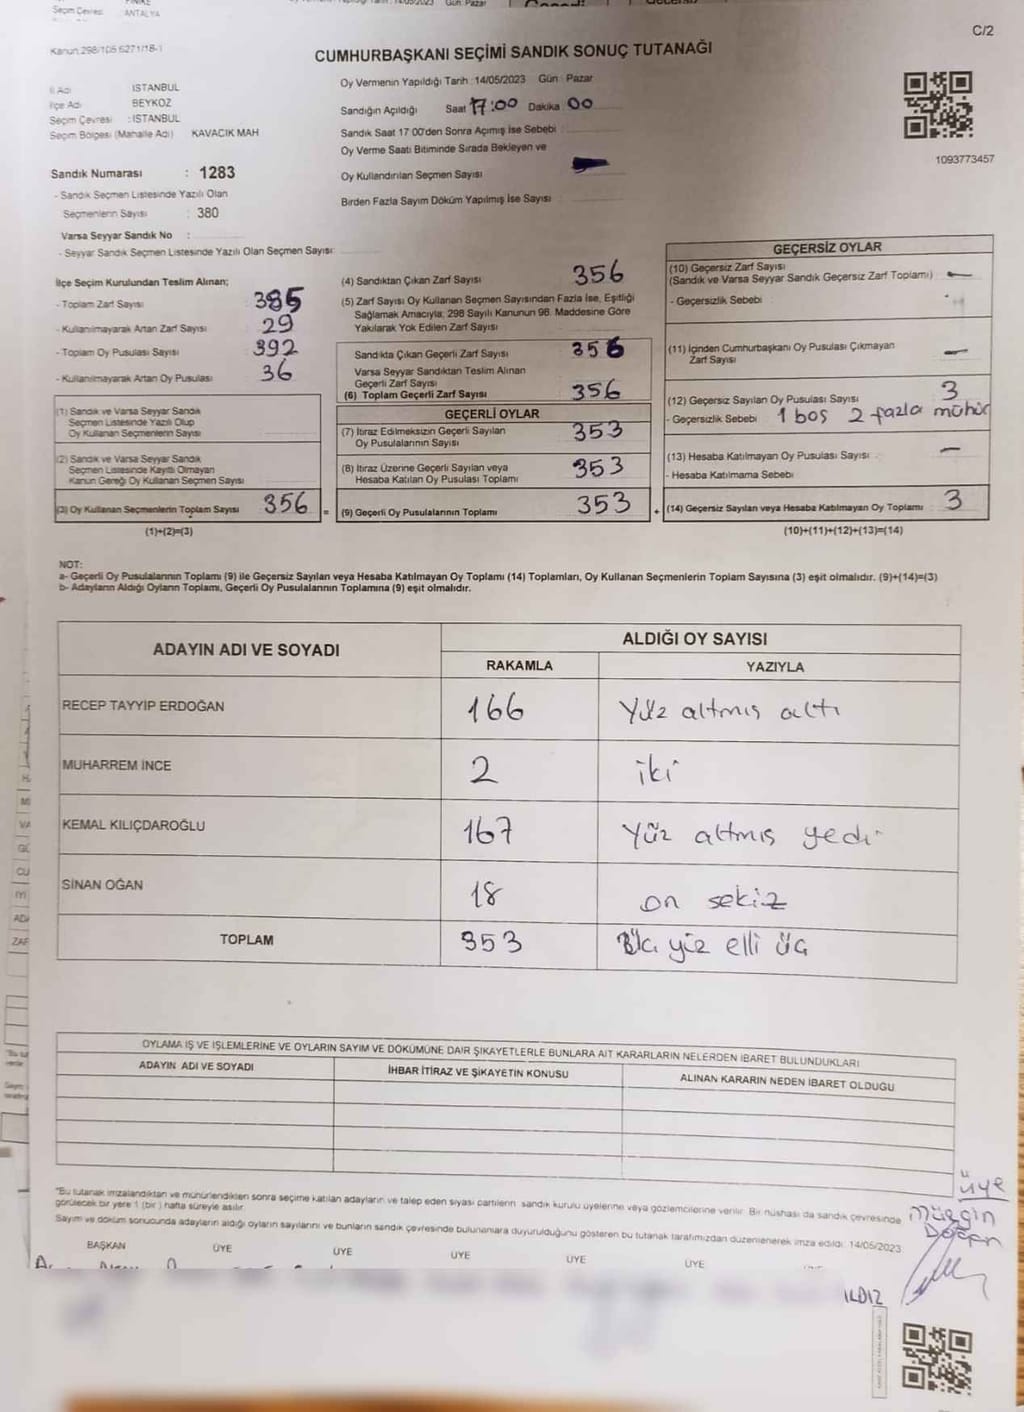 Seçim Çevresi ANTALYA
C/2
Kanun.298/105.6271/18-1
CUMHURBAŞKANI SEÇİMİ SANDIK SONUÇ TUTANAĞI
İl Adı : İSTANBUL
İlçe Adı : BEYKOZ
Seçim Çevresi : İSTANBUL
Seçim Bölgesi (Mahalle Adı) KAVACIK MAH
Oy Vermenin Yapıldığı Tarih :14/05/2023 Gün : Pazar
Sandığın Açıldığı Saat 17:00 Dakika 00
Sandık Saat 17 00'den Sonra Açımış İse Sebebi :
Oy Verme Saati Bitiminde Sırada Bekleyen ve
Oy Kullandırılan Seçmen Sayısı
Birden Fazla Sayım Döküm Yapılmış İse Sayısı
1093773457
Sandık Numarası : 1283
- Sandık Seçmen Listesinde Yazılı Olan
Seçmenlerin Sayısı : 380
Varsa Seyyar Sandık No :
- Seyyar Sandık Seçmen Listesinde Yazılı Olan Seçmen Sayısı:
İlçe Seçim Kurulundan Teslim Alınan;
- Toplam Zarf Sayısı 385
- Kullanılmayarak Artan Zarf Sayısı 29
- Toplam Oy Pusulası Sayısı 392
- Kullanılmayarak Artan Oy Pusulası 36
(1) Sandık ve Varsa Seyyar Sandık
Seçmen Listesinde Yazılı Olup
Oy Kullanan Seçmenlerin Sayısı
(2) Sandık ve Varsa Seyyar Sandık
Seçmen Listesinde Kayıtlı Olmayan
Kanun Gereği Oy Kullanan Seçmen Sayısı
(3) Oy Kullanan Seçmenlerin Toplam Sayısı 356 =
(1)+(2)=(3)
(4) Sandıktan Çıkan Zarf Sayısı 356
(5) Zarf Sayısı Oy Kullanan Seçmen Sayısından Fazla İse, Eşitliği
Sağlamak Amacıyla; 298 Sayılı Kanunun 98. Maddesine Göre
Yakılarak Yok Edilen Zarf Sayısı
Sandıkta Çıkan Geçerli Zarf Sayısı 356
Varsa Seyyar Sandıktan Teslim Alınan
Geçerli Zarf Sayısı
(6) Toplam Geçerli Zarf Sayısı 356
GEÇERLİ OYLAR
(7) İtiraz Edilmeksizin Geçerli Sayılan
Oy Pusulalarının Sayısı 353
(8) İtiraz Üzerine Geçerli Sayılan veya
Hesaba Katılan Oy Pusulası Toplamı 353
(9) Geçerli Oy Pusulalarının Toplamı 353 +
GEÇERSİZ OYLAR
(10) Geçersiz Zarf Sayısı
(Sandık ve Varsa Seyyar Sandık Geçersiz Zarf Toplamı) : —
- Geçersizlik Sebebi :
(11) İçinden Cumhurbaşkanı Oy Pusulası Çıkmayan
Zarf Sayısı —
(12) Geçersiz Sayılan Oy Pusulası Sayısı 3
- Geçersizlik Sebebi 1 boş 2 fazla mühür
(13) Hesaba Katılmayan Oy Pusulası Sayısı : —
- Hesaba Katılmama Sebebi
(14) Geçersiz Sayılan veya Hesaba Katılmayan Oy Toplamı 3
(10)+(11)+(12)+(13)=(14)
NOT:
a- Geçerli Oy Pusulalarının Toplamı (9) ile Geçersiz Sayılan veya Hesaba Katılmayan Oy Toplamı (14) Toplamları, Oy Kullanan Seçmenlerin Toplam Sayısına (3) eşit olmalıdır. (9)+(14)=(3)
b- Adayların Aldığı Oyların Toplamı, Geçerli Oy Pusulalarının Toplamına (9) eşit olmalıdır.
ADAYIN ADI VE SOYADI
ALDIĞI OY SAYISI
RAKAMLA YAZIYLA
RECEP TAYYİP ERDOĞAN 166 Yüz altmış altı
MUHARREM İNCE 2 iki
KEMAL KILIÇDAROĞLU 167 Yüz altmış yedi
SİNAN OĞAN 18 on sekiz
TOPLAM 353 yüz elli üç
OYLAMA İŞ VE İŞLEMLERİNE VE OYLARIN SAYIM VE DÖKÜMÜNE DAİR ŞİKAYETLERLE BUNLARA AİT KARARLARIN NELERDEN İBARET BULUNDUKLARI
ADAYIN ADI VE SOYADI İHBAR İTİRAZ VE ŞİKAYETİN KONUSU ALINAN KARARIN NEDEN İBARET OLDUĞU
"Bu tutanak imzalandıktan ve mühürlendikten sonra seçime katılan adayların ve talep eden siyasi partilerin sandık kurulu üyelerine veya gözlemcilerine verilir. Bir nüshası da sandık çevresinde
görülecek bir yere 1 (bir) hafta süreyle asılır.
Sayım ve döküm sonucunda adayların aldığı oyların sayılarını ve bunların sandık çevresinde bulunanlara duyurulduğunu gösteren bu tutanak tarafımızdan düzenlenerek imza edildi. 14/05/2023
BAŞKAN ÜYE ÜYE ÜYE ÜYE ÜYE
üye
Müzgin
Doğan
ILDIZ